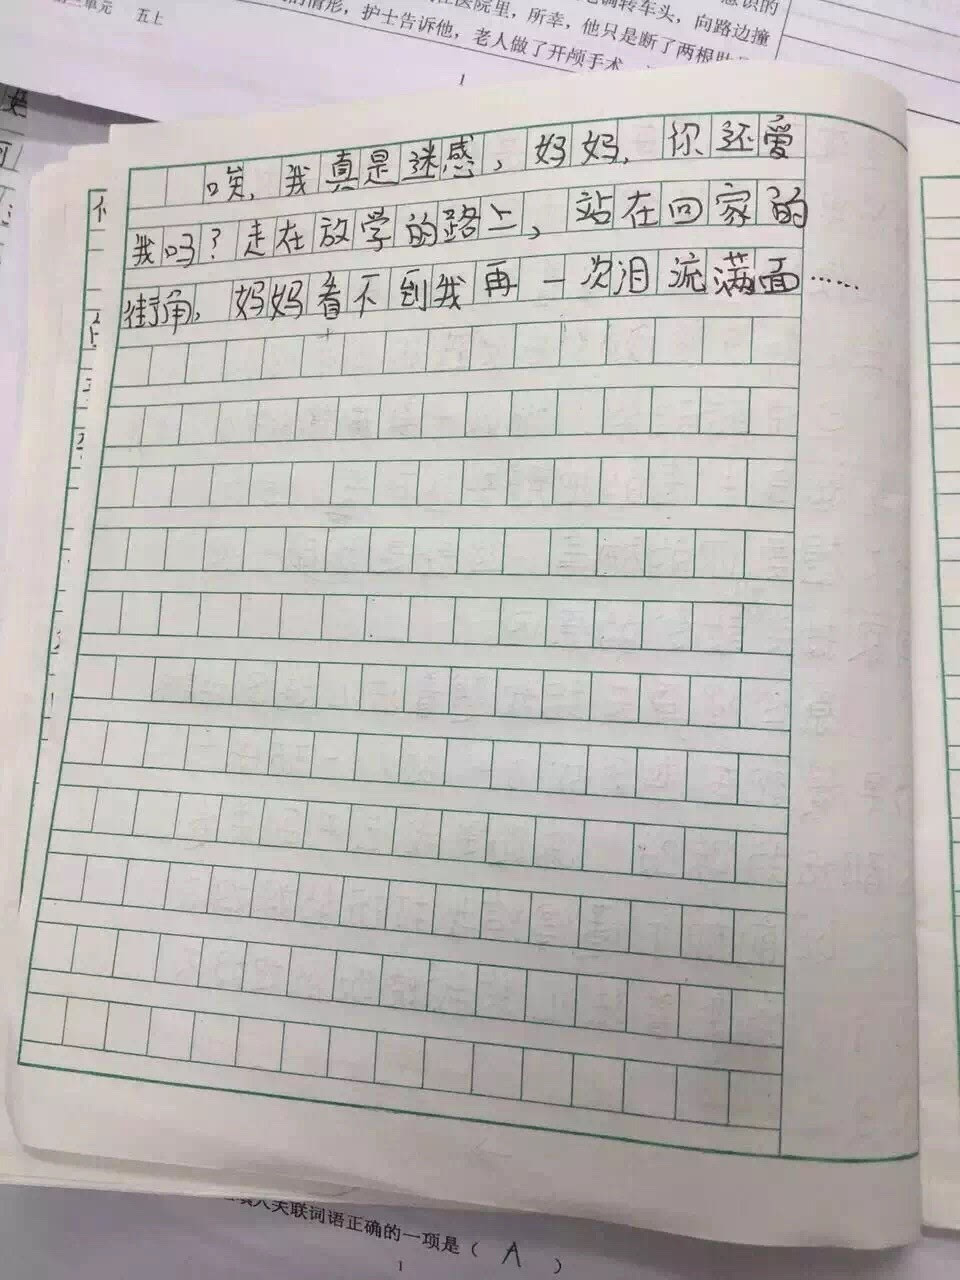 单元 五上
调转车头，向路边撞
医院里，所幸，他只是断了两根
的情形，护士告诉他，老人做了开颅手术
1
唉，我真是迷惑，妈妈，你还爱
我吗？走在放学的路上，站在回家的
街角，妈妈看不到我再一次泪流满面……
入关联词语正确的一项是（ A ）
1